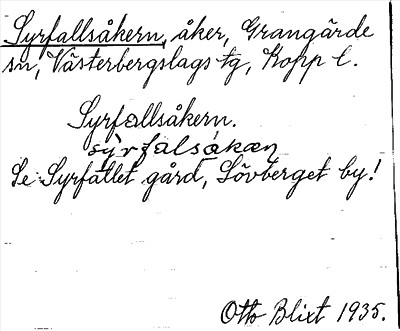 Syrfallsåkern, åker, Grangärde
sn, Västerbergslags tg, Kopp l.
Syrfallsåkern.
sy̍rfalsåkæn
Se Syrfallet gård, Lövberget by!
Otto Blixt 1935.